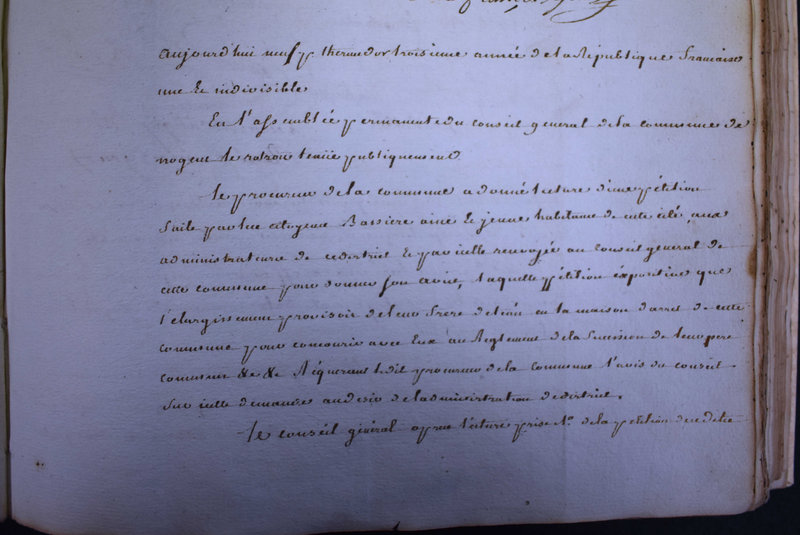 aujourd'hui neuf thermidor troisieme année de la République francaise
une & indivisible
En l'assemblée permanante du conseil general de la commune de
nogent le rotrou tenüe publiquement
le procureur de la commune a donné lecture d'une pétition
faite par les citoyens Bassiere ainé & jeune habitans de cette cité aux
administrateurs de ce district & par icelle renvoyée au conseil general de
cette commune pour donner son avis, laquelle pétition expositive que
l'elargissement provisoir de leur frere detenu en la maison d'arret de cette
commune pour concourir avec Eux au Reglement de la Sucession de leur pere
commun &c &c Réquerant ledit procureur de la commune l'avis du conseil
Sur icelle demande au desir de l'administration de district.
le conseil général apres lecture prise de la petition